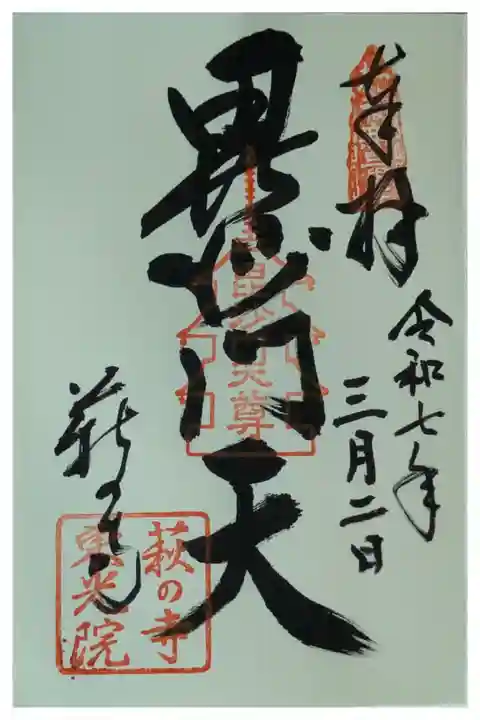 奉拝
令和七年
三月二日
毘沙門天
萩の寺
萩の寺
東光院